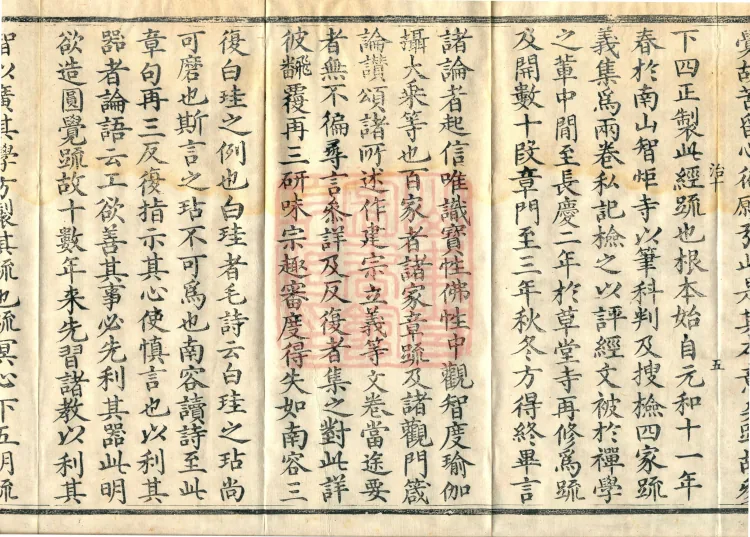 下四正製此經䟽也根本始自元和十一年
治十 五
春於南山智炬寺以筆科判及搜檢四家䟽
義集爲兩卷私記檢之以評經文被於禪學
之軰中間至長慶二年於草堂寺再修爲䟽
及開數十叚章門至三年秋冬方得終畢言
諸論者起信唯識寳性佛性中觀智度瑜伽
攝大乘等也百家者諸家章䟽及諸觀門箴
論讃頌諸所述作建宗立義等文卷當途要
者無不徧尋言叅詳及反復者集之對此詳
彼翻覆再三研味宗趣審度得失如南容三
復白珪之例也白珪者毛詩云白珪之玷尚
可磨也斯言之玷不可爲也南容讀詩至此
章句再三反復指示其心使慎言也以利其
器者論語云工欲善其事必先利其器此明
欲造圓覺䟽故十數年来先習諸教以利其
智以廣其學方製其䟽也䟽冥心下五明䟽